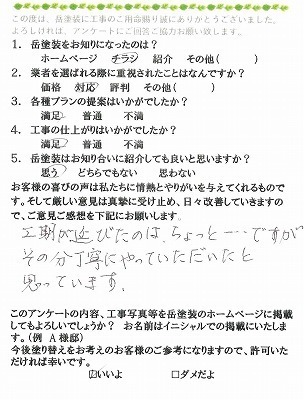 この度は、岳塗装に工事のご用命賜り誠にありがとうございました。
よろしければ、アンケートにご回答ご協力お願い致します。
1. 岳塗装をお知りになったのは？
ホームページ チラシ 紹介 その他( )
2. 業者を選ばれる際に重視されたことはなんですか？
価格 対応 評判 その他( )
3. 各種プランの提案はいかがでしたか？
満足 普通 不満
4. 工事の仕上がりはいかがでしたか？
満足 普通 不満
5. 岳塗装はお知り合いに紹介しても良いと思いますか？
思う どちらでもない 思わない
お客様の喜びの声は私たちに情熱とやりがいを与えてくれるもので
す。そして厳しい意見は真摯に受け止め、日々改善していきますの
で、ご意見ご感想を下記にお願いします。
工期が延びたのは、ちょっと…ですが
その分丁寧にやっていただいたと
思っています。
このアンケートの内容、工事写真等を岳塗装のホームページに掲載
してもよろしいでしょうか？ お名前はイニシャルでの掲載にいたしま
す。(例 A様邸)
今後塗り替えをお考えのお客様のご参考になりますので、許可いた
だければ幸いです。
☑いいよ □ダメだよ